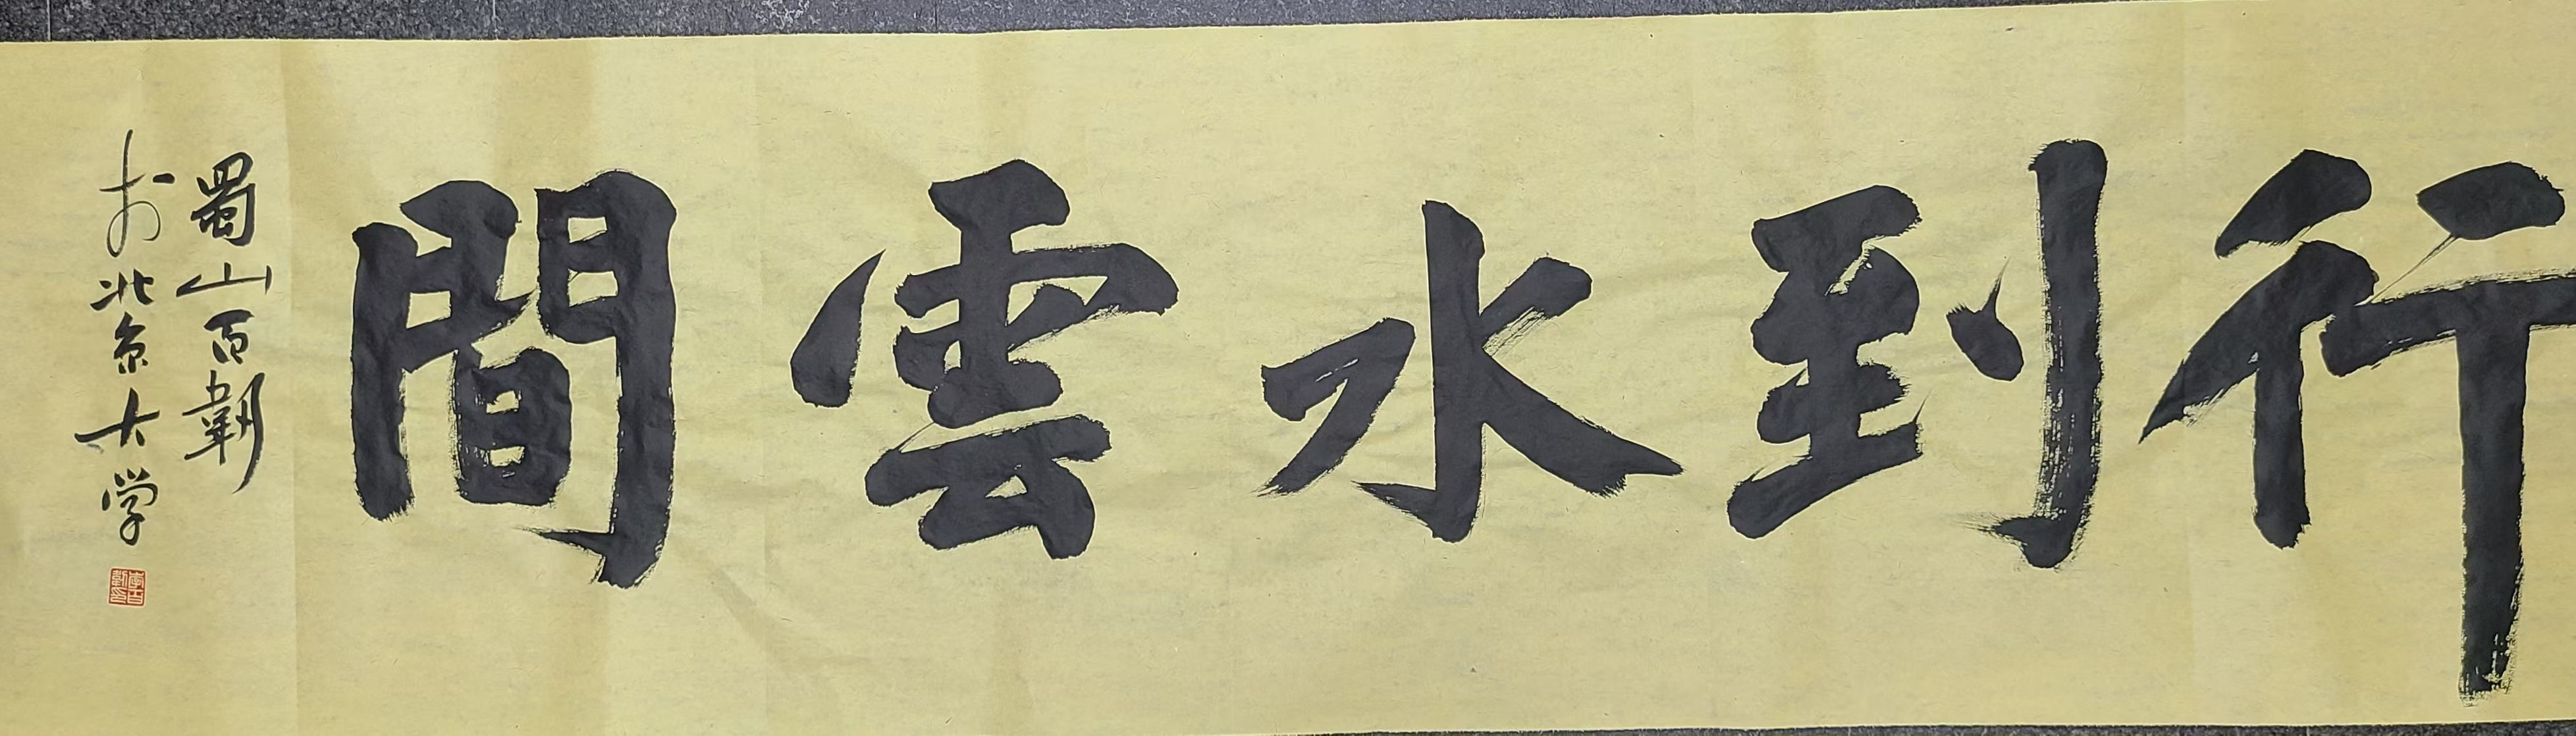 行到水雲間
蜀山百韌
於北京大学